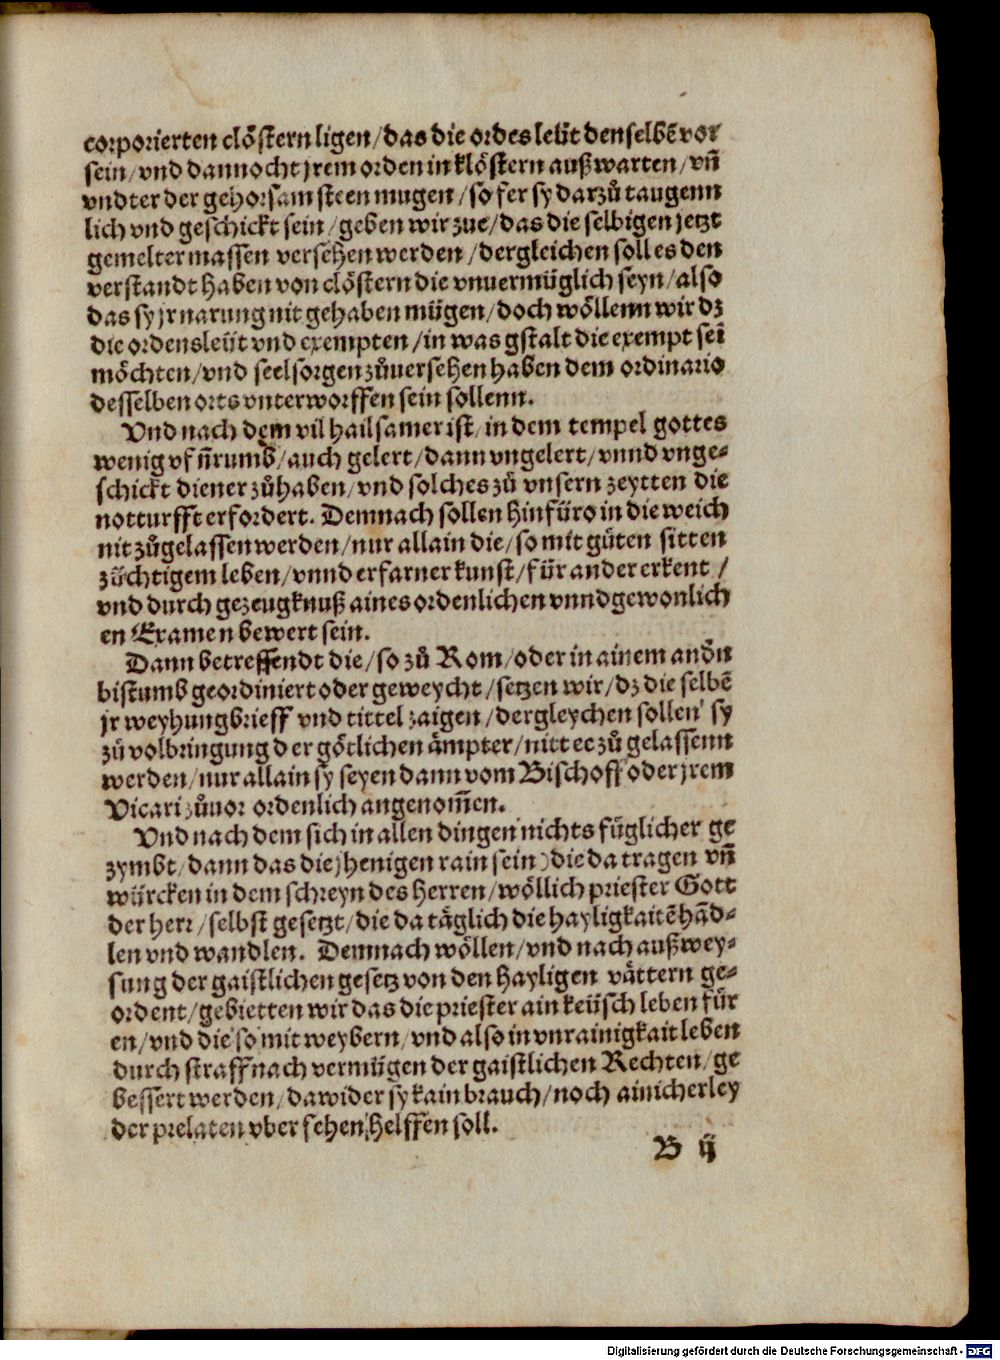 corporierten clöstern ligen/das die ordesleüt denselbẽ vor
sein/vnd dannocht jrem orden in klöstern außwarten/vñ
vndter der gehorsam steen mugen/so fer sy darzů taugenn
lich vnd geschickt sein/geben wir zue/das die selbigen jetzt
gemelter massen versehen werden/dergleichen soll es den
verstandt haben von clöstern die vnuermüglich seyn/also
das sy jr narung nit gehaben mügen/doch wöllenn wir dz
die ordensleüt vnd exempten/in was gstalt die exempt sei
möchten/vnd seelsorgen zůuersehen haben dem ordinario
desselben orts vnterworffen sein sollenn.
Vnd nach dem vil hailsamer ist/in dem tempel gottes
wenig vf ñrumb/auch gelert/dann vngelert/vnnd vnge-
schickt diener zůhaben/vnd solches zů vnsern zeytten die
notturfft erfordert. Demnach sollen hinfüro in die weich
nit zůgelassen werden/nur allain die/so mit gůten sitten
züchtigem leben/vnnd erfarner kunst/für ander erkent/
vnd durch gezeugknuß aines ordenlichen vnnd gewonlich
en Examen bewert sein.
Dann betreffendt die/so zů Rom/oder in ainem andn
bistumb geordiniert oder geweycht/setzen wir/dz die selbẽ
jr weyhungbrieff vnd tittel zaigen/dergleychen sollen sy
zů volbringung der götlichen ämpter/nitt ec zů gelassenn
werden/nur allain sy seyen dann vom Bischoff oder jrem
Vicari zůuor ordenlich angenom̃en.
Vnd nach dem sich in allen dingen nichts füglicher ge
zymbt/dann das die jhenigen rain sein) die da tragen vñ
würcken in dem schreyn des herren/wöllich priester Gott
der herr/selbst gesetzt/die da täglich die hayligkaitẽ hãd-
len vnd wandlen. Demnach wöllen/vnd nach außwey-
sung der gaistlichen gesetz von den hayligen vättern ge-
ordent/gebietten wir das die priester ain keüsch leben für
en/vnd die so mit weybern/vnd also in vnrainigkait leben
durch straff nach vermügen der gaistlichen Rechten/ge
bessert werden/dawider sy kain brauch/noch ainicherley
der prelaten vber sehen/helffen soll.
B ij
Digitalisierung gefördert durch die Deutsche Forschungsgemeinschaft - DFG